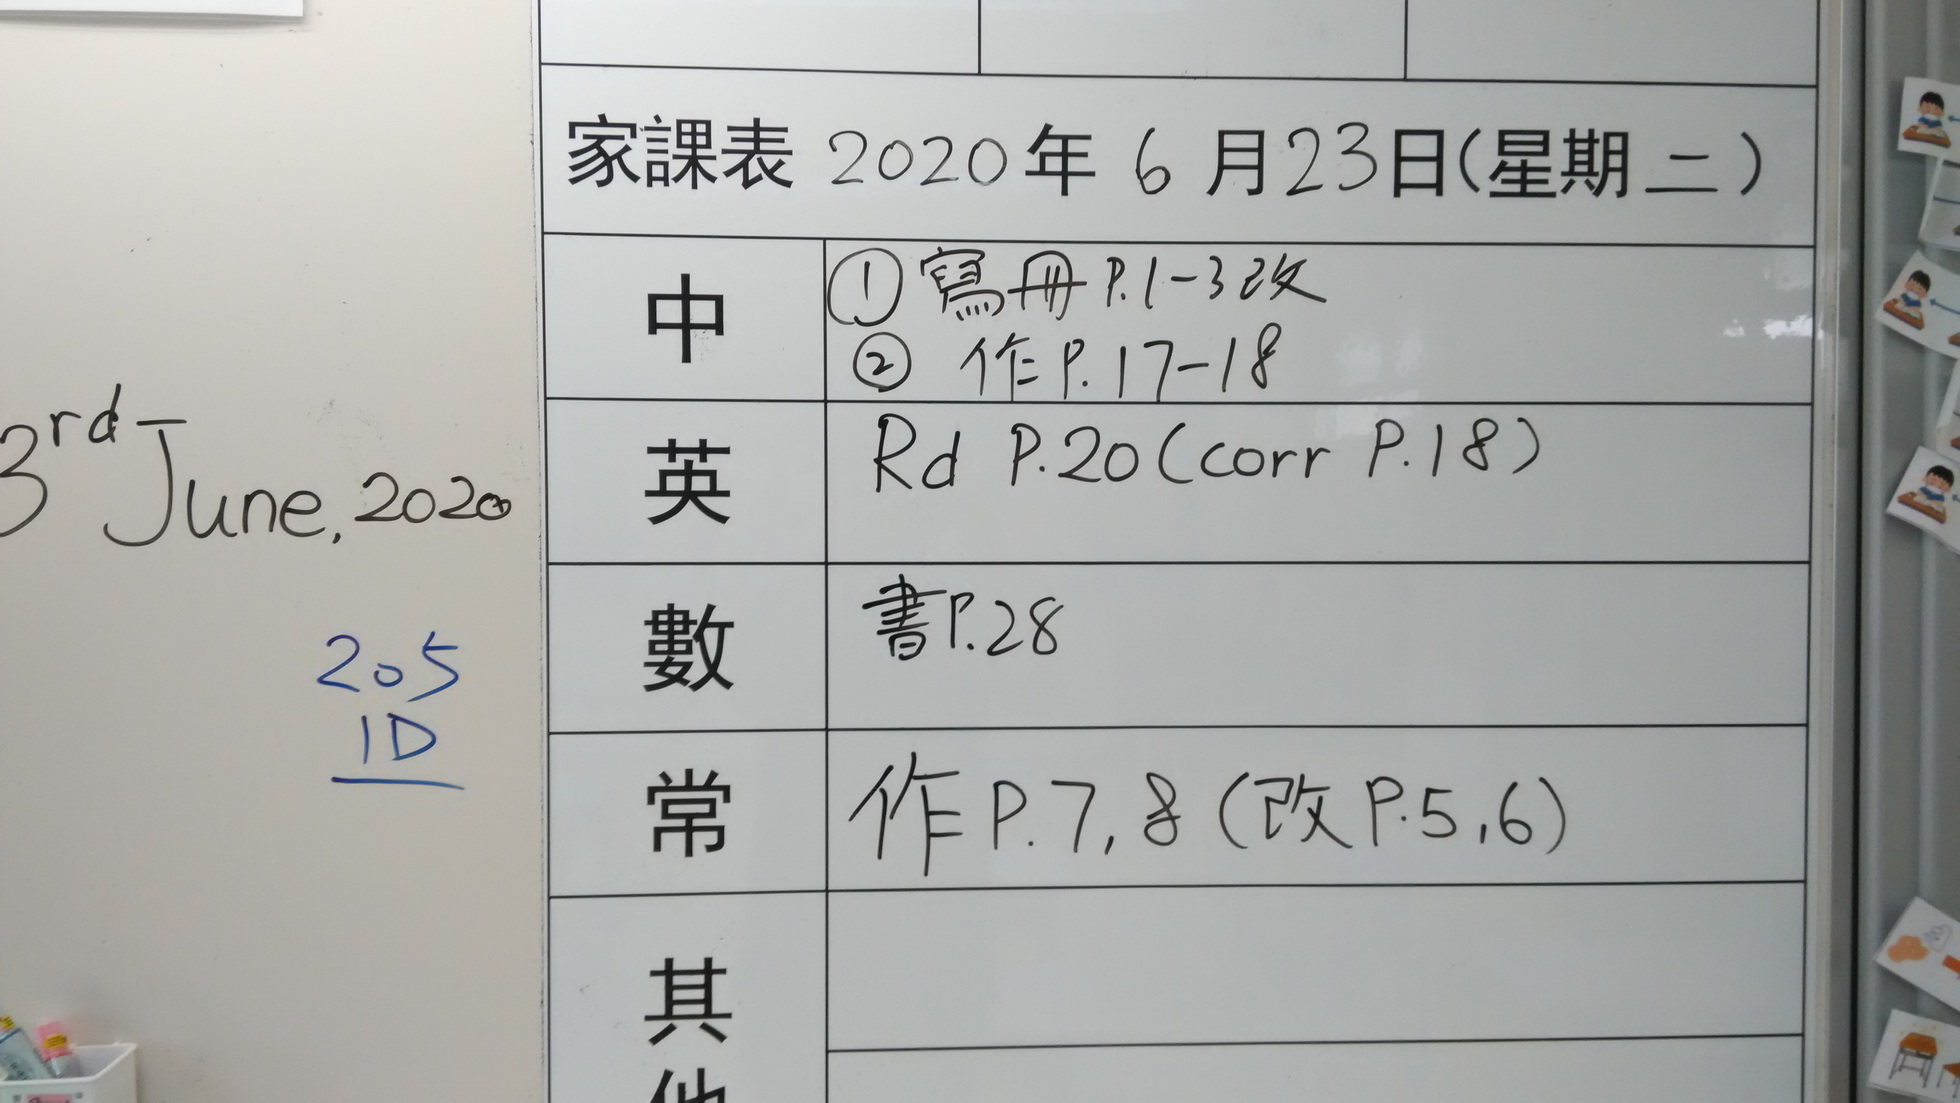 3rd June, 2020
205
1D
家課表 2020年 6 月23日(星期 二 )
中
① 寫冊 P.1-3改
② 作P.17-18
英
Rd P.20(corr P.18)
數
書P.28
常
作 P.7, 8 (改P.5,6)
其
他